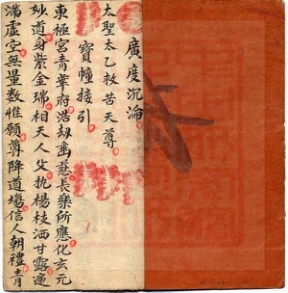 廣度沉淪
太聖太乙救苦天尊
寶幢接引
東極宮青華府浩劫
慈長樂所應化玄元
妙道身紫金瑞相天人
執楊枝洒甘露遍
滿虛空無量數惟願尊降道場信人朝禮青